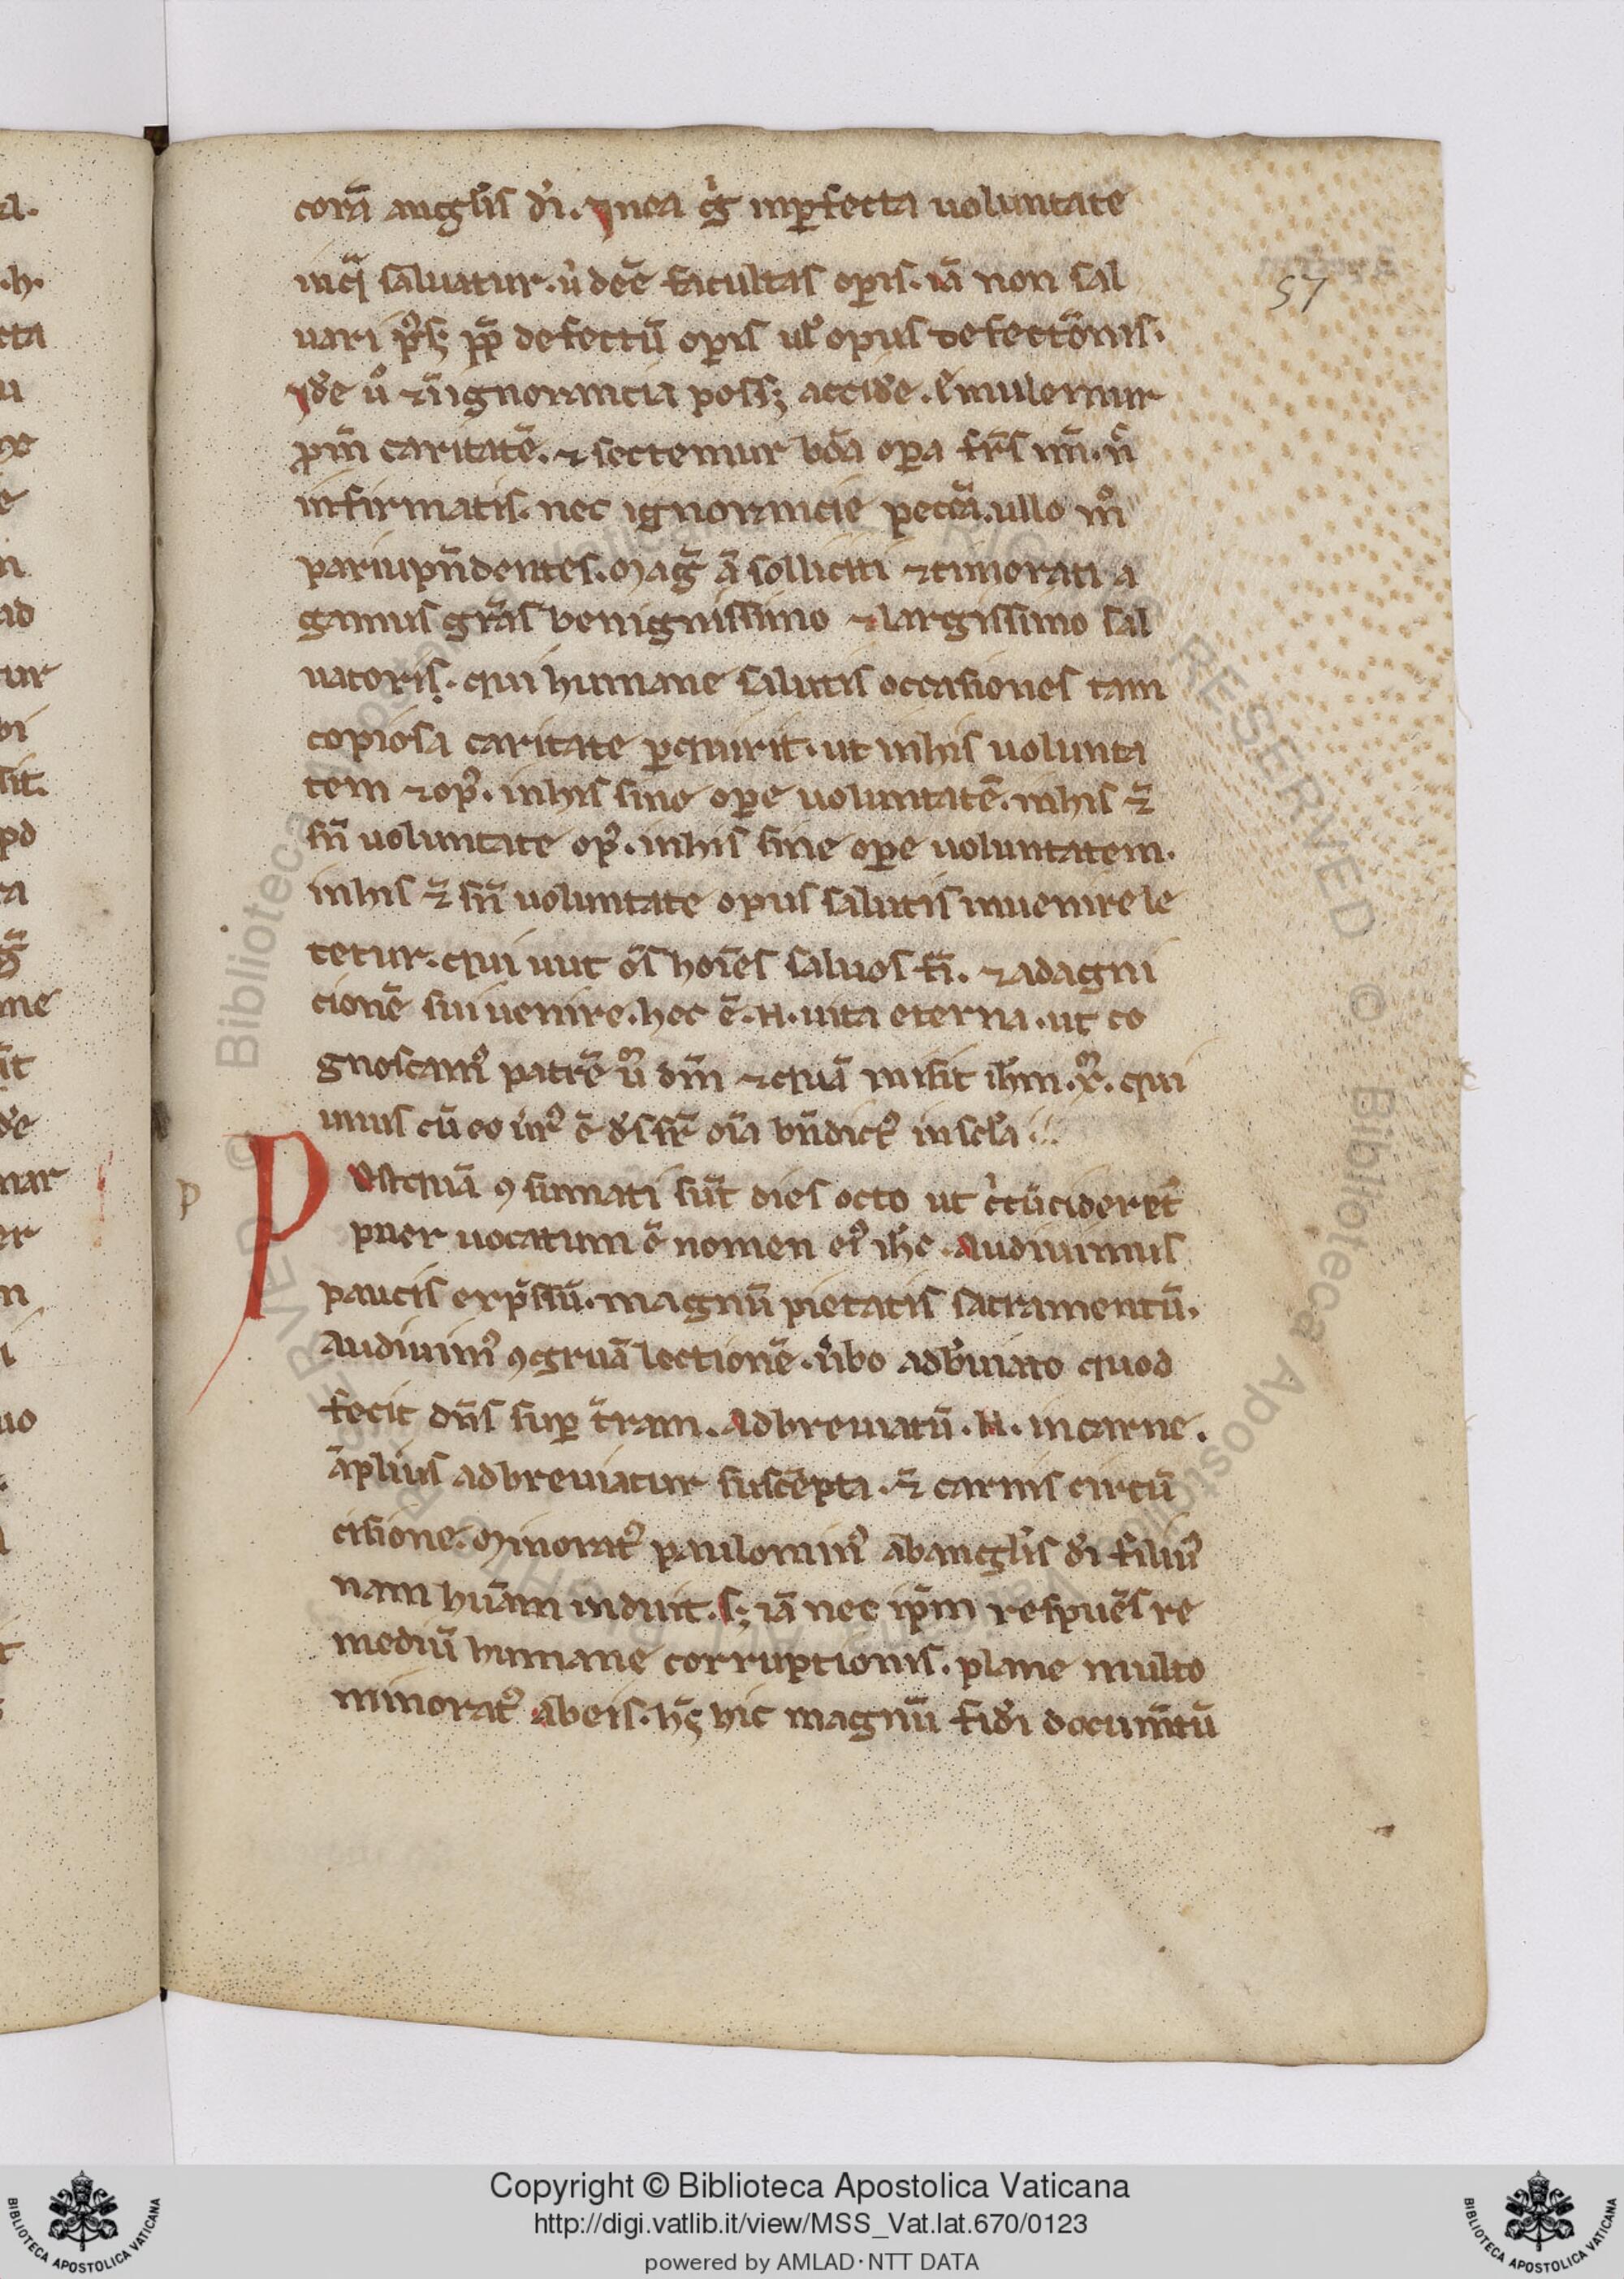 corā angl̓is dī. In ea g̊ inꝑfecta uoluntate
inqͣ saluatur. u̇ deē facultas oꝑis. iā non sal
uari pꝰs; ꝓꝑ defectū oꝑis ul̓ opus defectōnis.
Iđe u̇ ⁊ ñ ignorancia poss; accidẽ. Emulemur
ꝓin̄ caritatē. ⁊ sectemur bōa oꝑa fr̄s mī. ñ
infirmatis. nec ignorancie pecc̄a. ullo m̊
paruipn̄dentes. Mag̓ ā solliciti ⁊ timorati a
gamus gr̄as benignissimo ⁊ largissimo sal
uatoris. qui humane salutis occasiones tam
copiosa caritate ꝑquirit. ut inhis uolunta
tem ⁊ opꝰ. inhis sine oꝑe uoluntatē. inhis ⁊̄
sn̄ uoluntate opꝰ. inhis sine oꝑe uoluntatem.
inhis ⁊̄ sn̄ uoluntate opus salutis inuenire le
tetur. qui uut ōs hoīes saluos fī. ⁊ adagni
cionē sui uenire. hec ē. N. uita eterna. ut co
gnoscamꝰ patrē ūm dm̄ ⁊ quā misit ih̄m. xm̄. qui
unus cū eo ⁊ sꝰ ē d̄s sr̄ oīa bn̄dictꝰ in scl̄a.
Postquā ꝯsumati sūt dies octo ut cͥcūcideret᷑
puer uocatum ē nomen eiꝰ ih̄c. Audiuimus
paucis exp̄ssū. magnū pietatis sacramentū.
Audiuimꝰ ꝯgruā lectionē. u̓bo adb̓uiato quod
fecit dn̄s suꝑ t̄ram. Adbreuiatū. N. incarne.
āplius adbreuiatur suscēpta. ⁊̄ carnis circū
cisione. Minorat᷑ paulominꝰ abangl̓is dī filiꝰ
nam hūam induit. S; iā nec ip̄m respuēs re
mediū humane corruptionis. plane multo
minorat᷑ abeis. hȝ hic magnū fid̓i documm̄tū
P
57
Copyright © Biblioteca Apostolica Vaticana
http://digi.vatlib.it/view/MSS_Vat.lat.670/0123
powered by AMLAD·NTT DATA